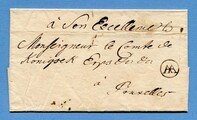 à Son Excellence
Monseigneur le Comte de
Konigsek
à
Bruxelles